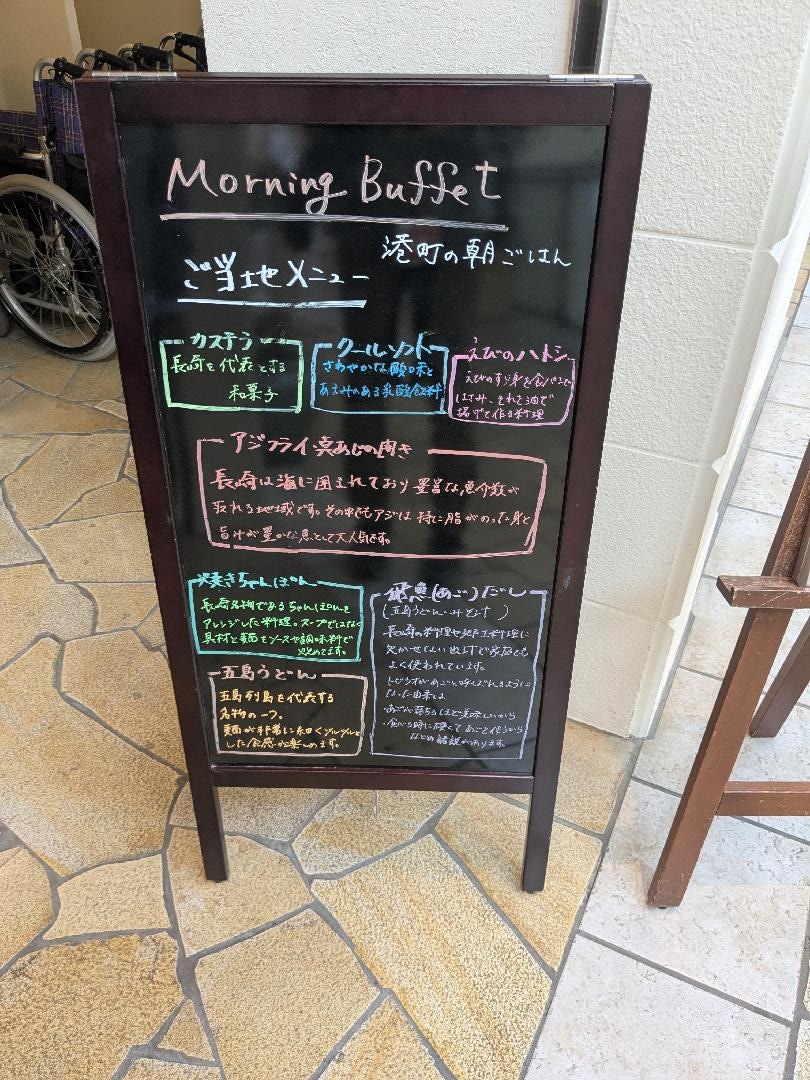 Morning Buffet
港町の朝ごはん
ご当地メニュー
カステラ
長崎を代表とする
和菓子
クールソフト
さわやかな酸味と
あまみのある乳酸飲料
えびのハトシ
えびのすり身を食パンで
はさみ、それを油で
揚げて作る料理
アジフライ・真あじの開き
長崎は海に囲まれており豊富な魚介類が
取れる地域です。その中でもアジは特に脂がのった身と
旨汁が豊かな魚として大人気です。
焼きちゃんぽん
長崎名物であるちゃんぽんを
アレンジした料理。スープではなく
具材と麺をソースや調味料で
炒めてます。
五島うどん
五島列島を代表する
名物の一つ。
麺が非常に細くツルツルと
した食感が楽しめます。
飛魚(あご)だし
(五島うどん・みそ汁)
長崎の料理や郷土料理に
欠かせない出汁で家庭でも
よく使われています。
トビウオがあごと呼ばれるように
なった由来は
・あごが落ちるほど美味しいから
・食べる時に硬くてあごを使うから
など諸説があります。